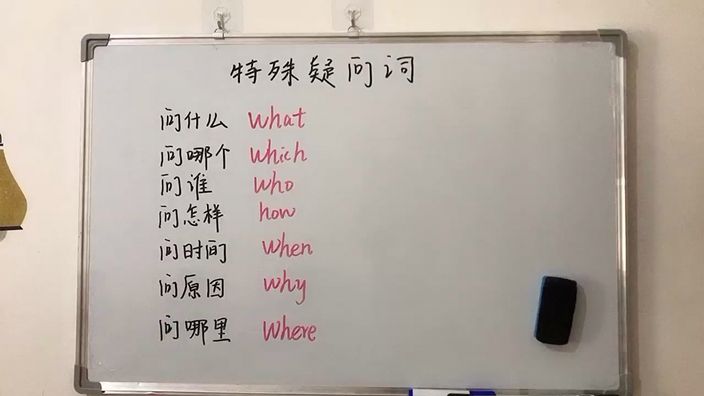 特殊疑问词
问什么 what
问哪个 which
问谁 who
问怎样 how
问时间 when
问原因 why
问哪里 where